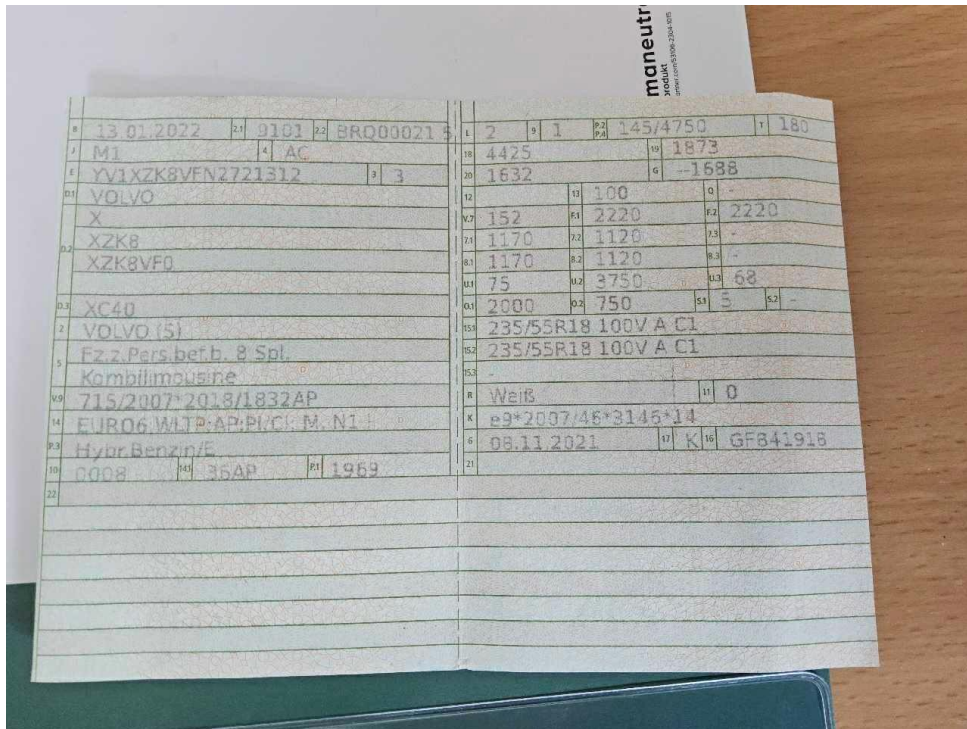 maneutr
produkt
B 13.01.2022 2.1 9101 2.2 BRQ00021 5
J M1 4 AC
E YV1XZK8VFN2721312 3 3
D.1 VOLVO
X
D.2 XZK8
XZK8VF0
D.3 XC40
2 VOLVO (S)
5 Fz.z.Pers.bef.b. 8 Spl.
Kombilimousine
V.9 715/2007*2018/1832AP
14 EURO6;WLTP;AP;PI/CI; M, N1 I
P.3 Hybr.Benzin/E
10 0008 14.1 36AP P.1 1969
22
L 2 9 1 P.2 P.4 145/4750 T 180
18 4425 19 1873
20 1632 G --1688
12 13 100 Q -
V.7 152 F.1 2220 F.2 2220
7.1 1170 7.2 1120 7.3 -
8.1 1170 8.2 1120 8.3 -
U.1 75 U.2 3750 U.3 68
O.1 2000 O.2 750 S.1 5 S.2 -
15.1 235/55R18 100V A C1
15.2 235/55R18 100V A C1
15.3 -
R Weiß 11 0
K e9*2007/46*3146*14
6 08.11.2021 17 K 16 GF841918
21